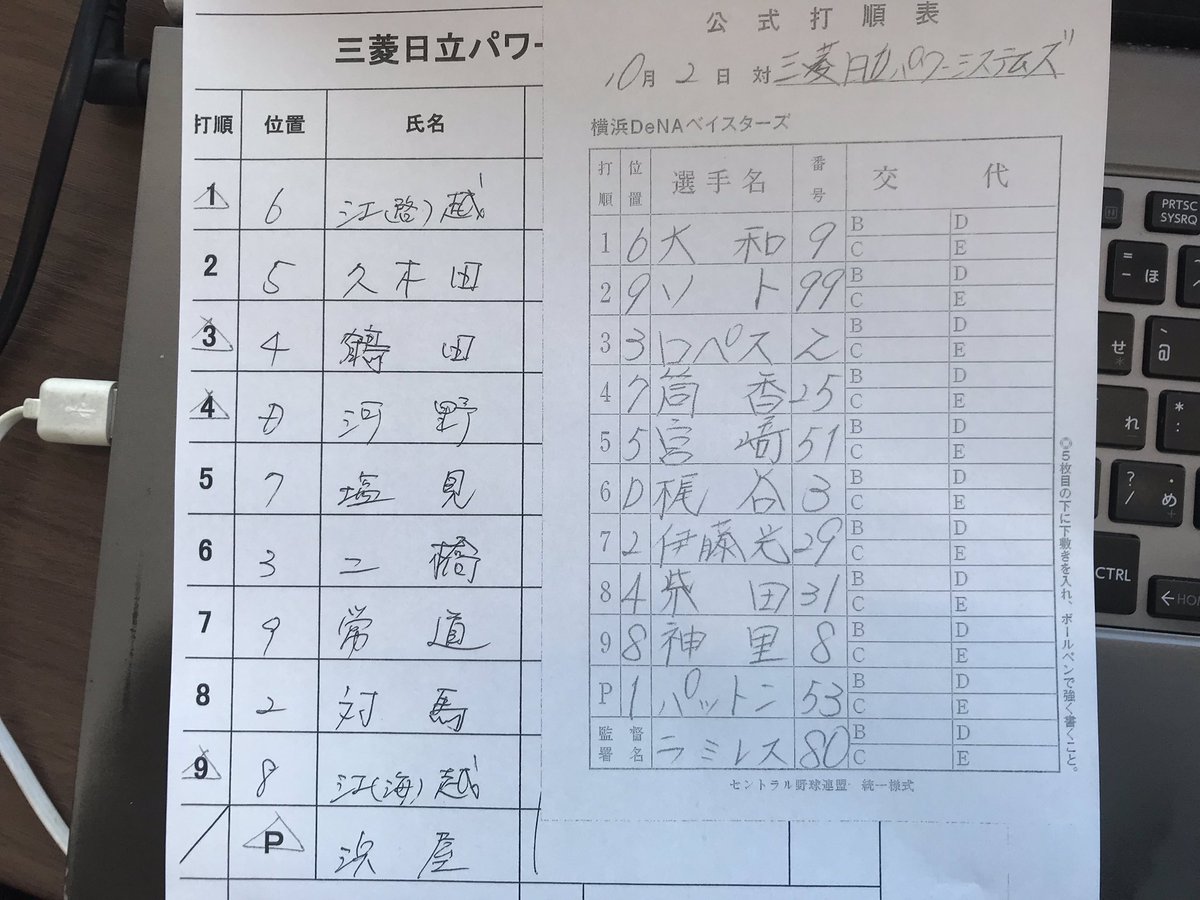 三菱日立パワー
打順 位置 氏名
1 6 江(啓)越
2 5 久木田
3 4 鶴田
4 D 河野
5 7 塩見
6 3 二橋
7 9 常道
8 2 対馬
9 8 江(海)越
P 浜屋
公式打順表
10月2日 対 三菱日立パワーシステムズ
横浜DeNAベイスターズ
打順 位置 選手名 番号 交代
1 6 大和 9 B D
C E
2 9 ソト 99 B D
C E
3 3 ロペス 2 B D
C E
4 7 筒香 25 B D
C E
5 5 宮﨑 51 B D
C E
6 D 梶谷 3 B D
C E
7 2 伊藤光 29 B D
C E
8 4 柴田 31 B D
C E
9 8 神里 8 B D
C E
P 1 パットン 53 B D
C E
監督署名 ラミレス 80 B D
C E
セントラル野球連盟 統一様式
◎5枚目の下に下敷きを入れ、ボールペンで強く書くこと。
PRTSC
SYSRQ
= - ほ
せ
@
れ
* :
? / ・ め
CTRL
←HOM